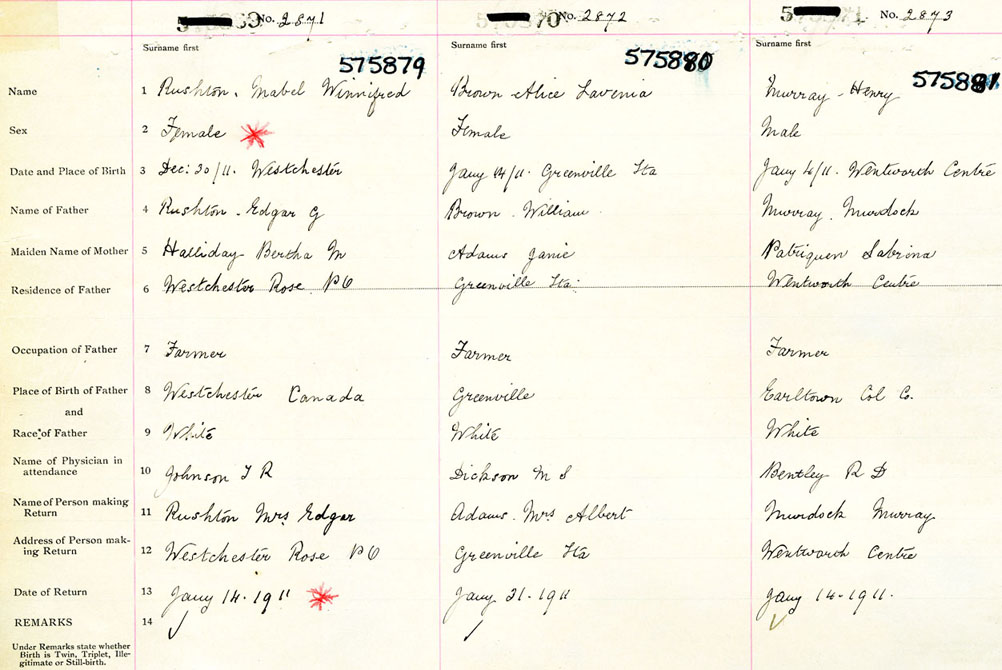 No. 2871 No. 2872 No. 2873
Surname first Surname first Surname first
575879 575880 575881
Name 1 Rushton. Mabel Winnifred Brown Alice Lavenia Murray - Henry
Sex 2 Female Female Male
Date and Place of Birth 3 Dec: 30/11. Westchester Jany 14/11. Greenville Sta Jany 4/11. Wentworth Centre
Name of Father 4 Rushton. Edgar G Brown. William Murray. Murdock
Maiden Name of Mother 5 Halliday Bertha M Adams Janie Patriquen Sabrina
Residence of Father 6 Westchester Rose PO Greenville Sta: Wentworth Centre
Occupation of Father 7 Farmer Farmer Farmer
Place of Birth of Father 8 Westchester Canada Greenville Earltown Col Co.
and
Race of Father 9 White White White
Name of Physician in
attendance 10 Johnson T R Dickson M S Bentley R D
Name of Person making
Return 11 Rushton Mrs Edgar Adams. Mrs Albert Murdock Murray
Address of Person mak-
ing Return 12 Westchester Rose PO Greenville Sta Wentworth Centre
Date of Return 13 Jany 14-1911 Jany 21-1911 Jany 14-1911.
REMARKS 14
Under Remarks state whether
Birth is Twin, Triplet, Ille-
gitimate or Still-birth.